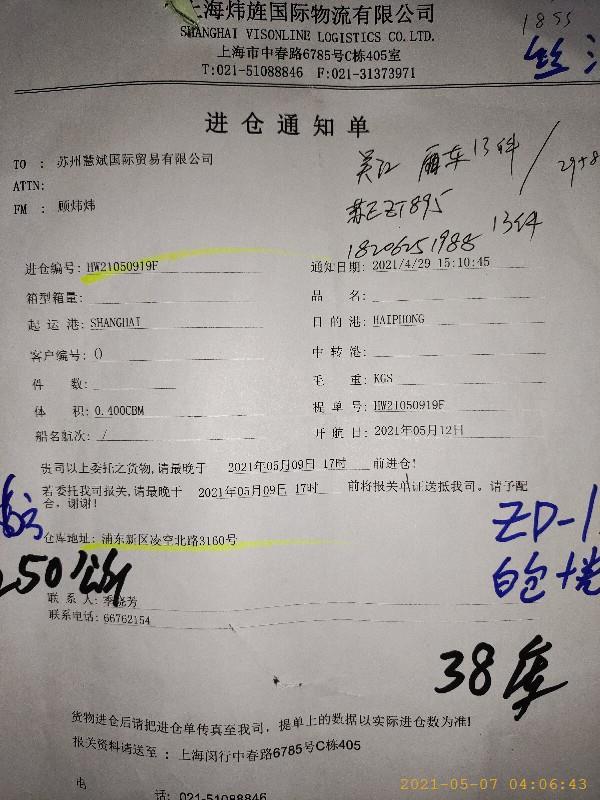 上海炜旌国际物流有限公司
SHANGHAI VISONLINE LOGISTICS CO. LTD.
上海市中春路6785号C栋405室
T:021-51088846 F:021-31373971
1855
丝
进仓通知单
TO : 苏州慧斌国际贸易有限公司
ATTN:
FM : 顾炜炜
吴江 厢车 13件 / 29+8
苏EZT895
18206251988 13件
进仓编号: HW21050919F 通知日期: 2021/4/29 15:10:45
箱型箱量: 品 名:
起运港: SHANGHAI 目的港: HAIPHONG
客户编号: () 中转港:
件 数: 毛 重: KGS
体 积: 0.400CBM 提单号: HW21050919F
船名航次: / 开航日: 2021年05月12日
贵司以上委托之货物,请最晚于 2021年05月09日 17时 前进仓!
若委托我司报关,请最晚于 2021年05月09日 17时 前将报关单证送抵我司。请予配
合,谢谢!
仓库地址: 浦东新区凌空北路3160号
ZD-1
白包
250
联系人: 季晓芳
联系电话: 66762154
38库
货物进仓后请把进仓单传真至我司, 提单上的数据以实际进仓数为准!
报关资料请送至 : 上海闵行中春路6785号C栋405
电 话: 021-51088846
2021-05-07 04:06:43